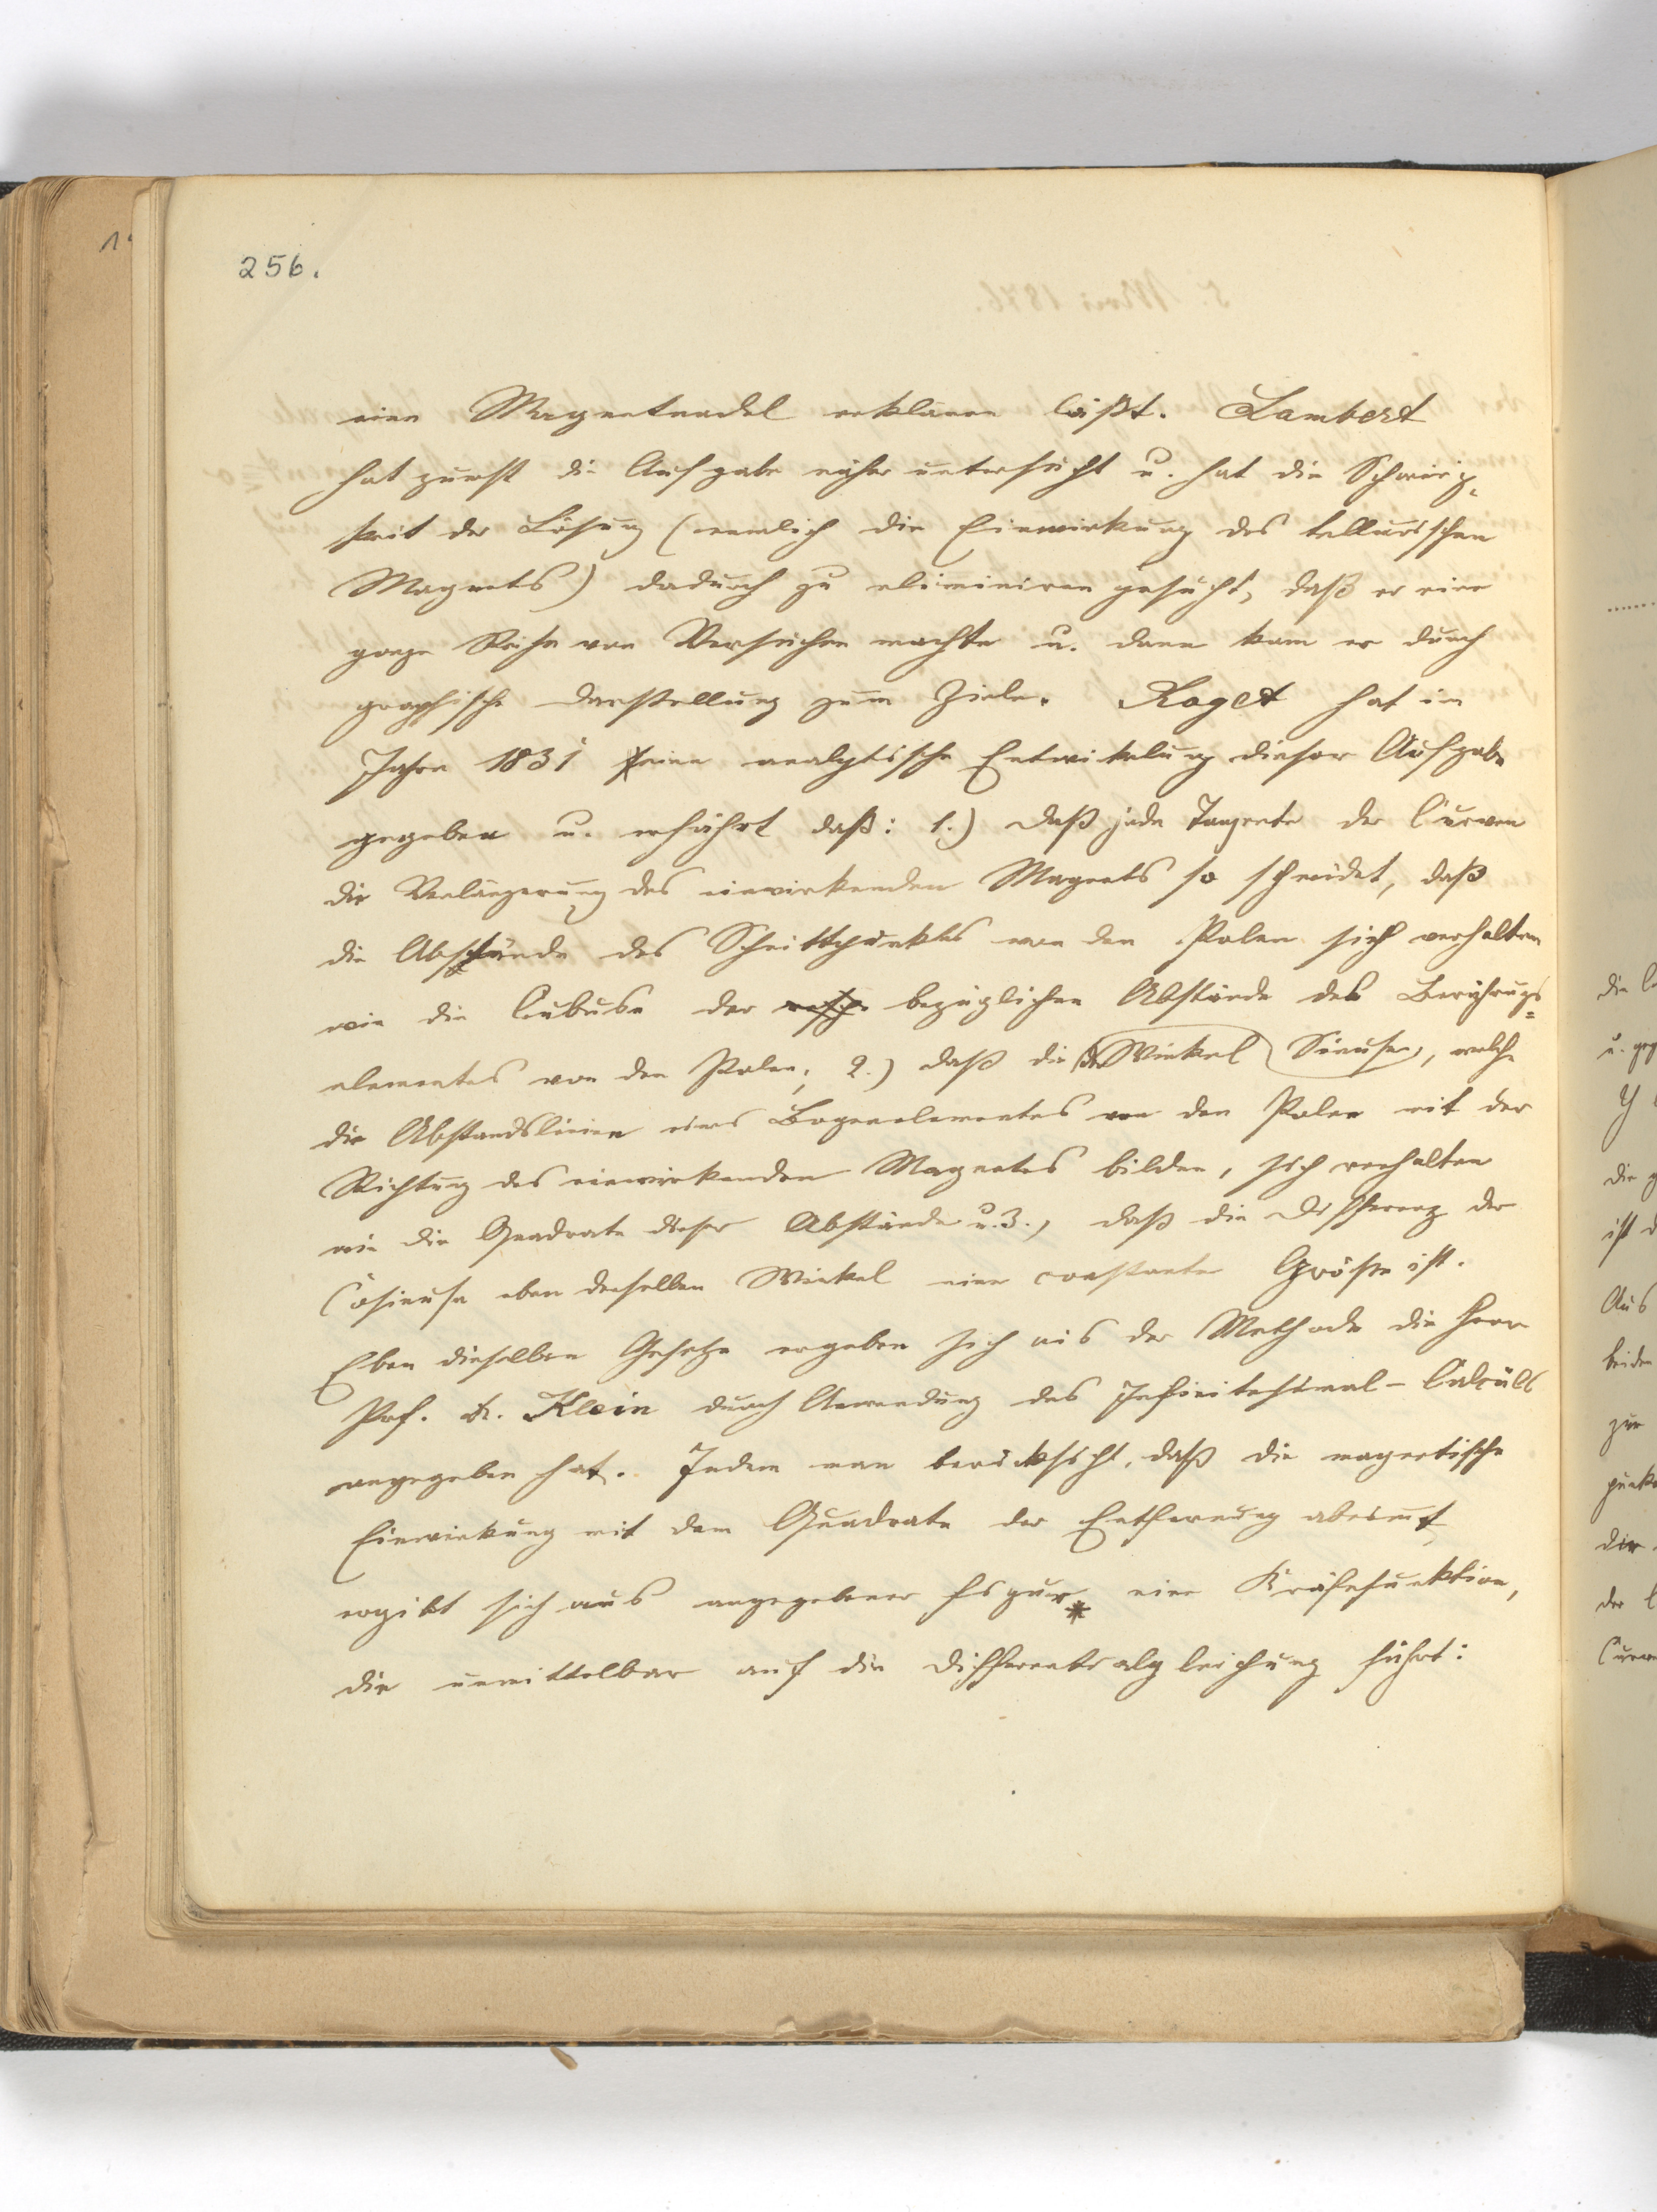 256.
eine Magnetnadel erklären läßt. Lambert
hat zuerst die Aufgabe näher untersucht u. hat die Schwierig-
keit der Lösung (nemlich die Einwirkung des tellurischen
Magnets) dadurch zu eliminiren gesucht, daß er eine
ganze Reihe von Versuchen machte u. dann kam er durch
graphische Darstellung zum Ziele. Roget hat im
Jahre 1831 eine analytische Entwikelung dieser Aufgabe
gegeben u. erfährt daß: 1.) daß jede Tangente der Curven
die Verlängerung des einwirkenden Magnets so schneidet, daß
die Abstände des Schnittpunktes von den Polen sich verhalten
wie die Cubuse der bezüglichen Abstände des Berührugs=
elementes von den Polen; 2.) daß die der Winkel Sinuse, welche
die Abstandslinien eines Bogenelementes von den Polen mit der
Richtung des einwirkenden Magnetes bilden, sich verhalten
wie die Quadrate dieser Abstände u. 3., daß die Differenz der
Cosinuse eben derselben Winkel eine constante Größe ist.
Eben dieselben Gesetze ergeben sich aus der Methode die Herr
Prof. Dr. Klein durch Anwendung des Infinitesimal-Calculs
angegeben hat. Indem man berücksicht, daß die magnetische
Einwirkung mit dem Quadrate der Entfernung abnimmt,
ergibt sich aus angegebener Figur* eine Kräftefunktion,
die unmittelbar auf die Differentialgleichung führt: